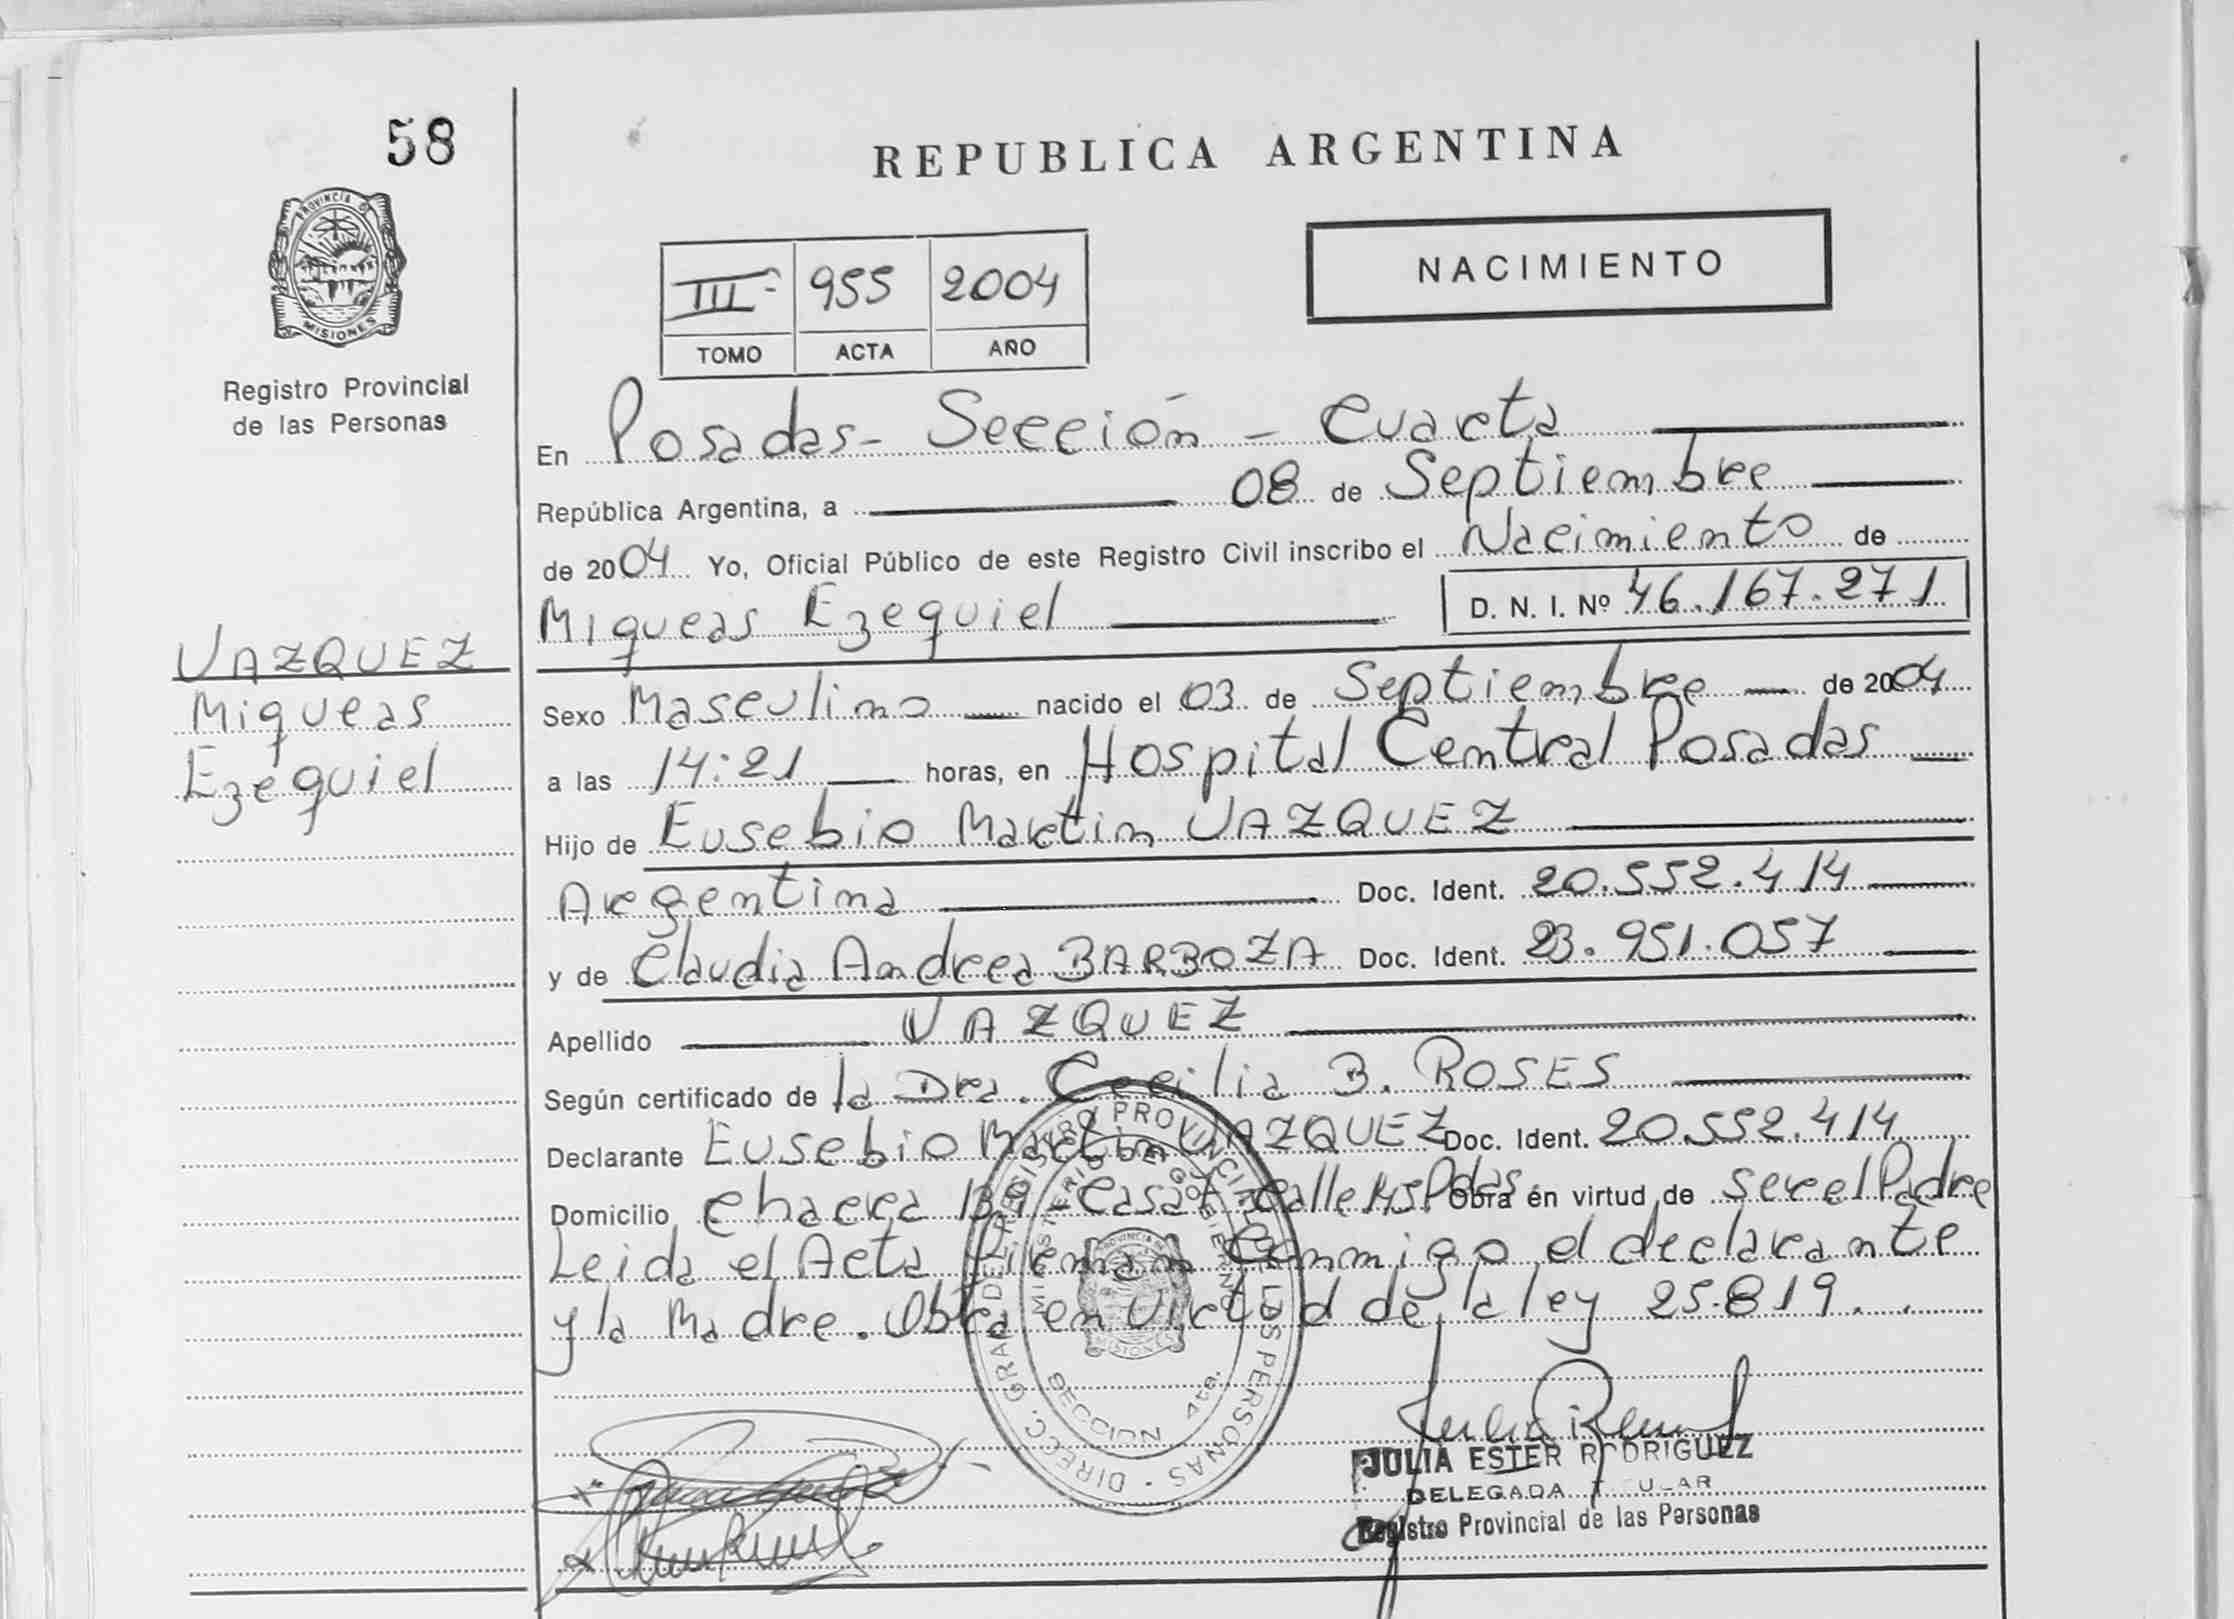 58
REPUBLICA ARGENTINA
PROVINCIA D
MISIONES
Registro Provincial
de las Personas
III 955 2004
TOMO ACTA AÑO
NACIMIENTO
En Posadas - Sección - Cuarta
República Argentina, a 08 de Septiembre
de 2004 Yo, Oficial Público de este Registro Civil inscribo el Nacimiento de
Miqueas Ezequiel D. N. I. Nº 46.167.271
VAZQUEZ
Miqueas
Ezequiel
Sexo Masculino nacido el 03 de Septiembre de 2004
a las 14:21 horas, en Hospital Central Posadas
Hijo de Eusebio Martin VAZQUEZ
Argentina Doc. Ident. 20.552.414
y de Claudia Andrea BARBOZA Doc. Ident. 23.951.057
Apellido VAZQUEZ
Según certificado de la Dra. Cecilia B. ROSES
Declarante Eusebio Martin VAZQUEZ Doc. Ident. 20.552.414
Domicilio Chacra 139 - Casa Calle Pdas. Obra en virtud de ser el Padre
Leida el Acta Firman Conmigo el declarante
y la Madre. Obra en Virtud de la ley 25.819.
DIRECC. GRAL DEL REGISTRO PROVINCIAL DE LAS PERSONAS
MINISTERIO DE GOBIERNO
SECCION 4ta.
JULIA ESTER RODRIGUEZ
DELEGADA TITULAR
Registro Provincial de las Personas